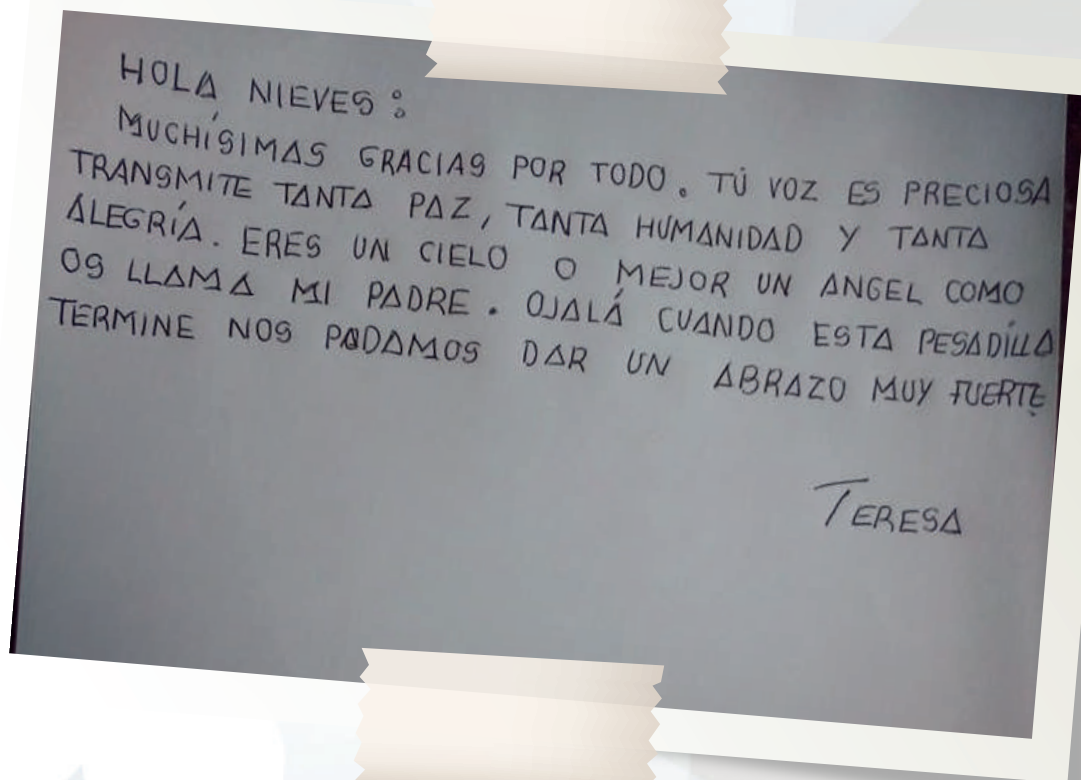 HOLA NIEVES:
MUCHÍSIMAS GRACIAS POR TODO. TÚ VOZ ES PRECIOSA
TRANSMITE TANTA PAZ, TANTA HUMANIDAD Y TANTA
ALEGRÍA. ERES UN CIELO O MEJOR UN ANGEL COMO
OS LLAMA MI PADRE. OJALÁ CUANDO ESTA PESADÍLLA
TERMINE NOS PODAMOS DAR UN ABRAZO MUY FUERTE.
TERESA